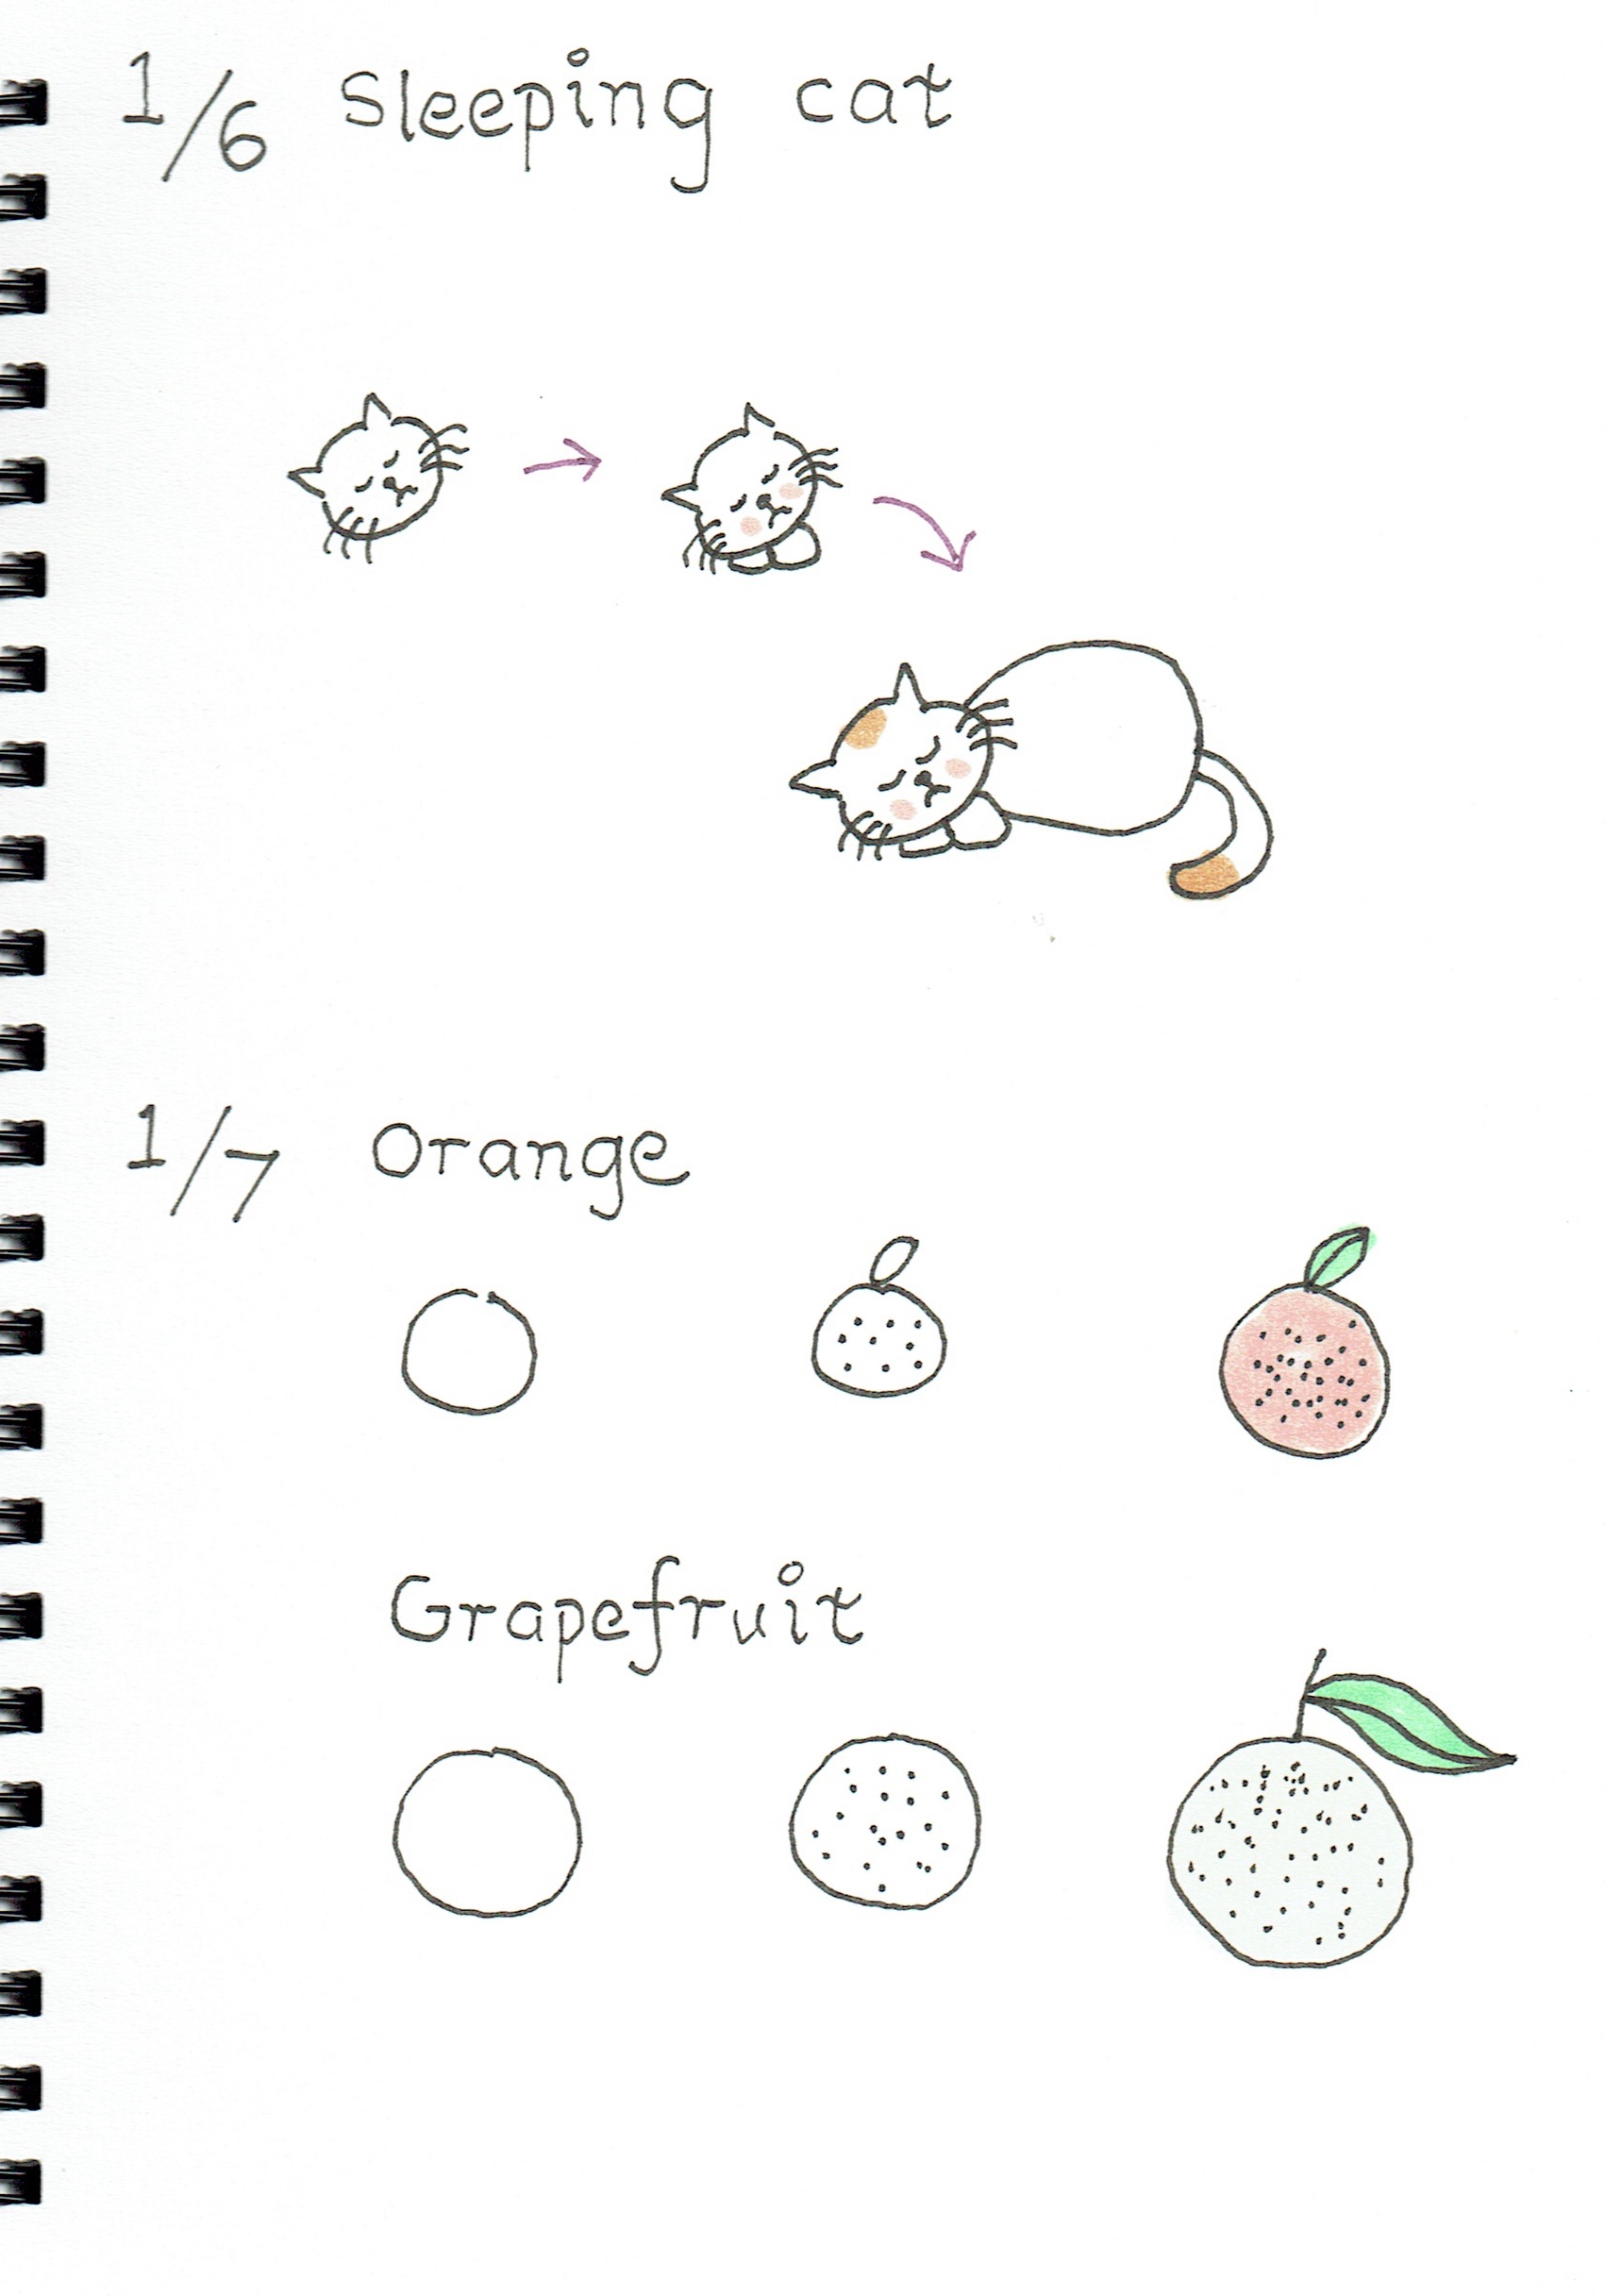 1/6 Sleeping cat
1/7 Orange
Grapefruit